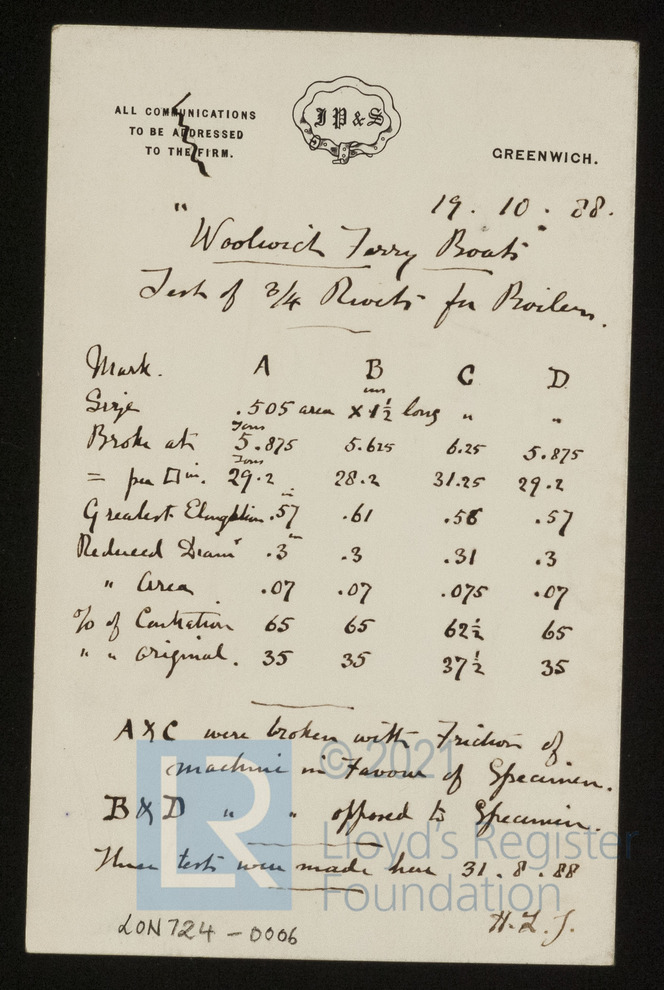 ALL COMMUNICATIONS
TO BE ADDRESSED
TO THE FIRM.
J P & S
GREENWICH.
19. 10. 88.
"Woolwich Ferry Boats"
Test of 3/4 Rivets for Boilers.
Mark. A B C D
Size .505 area × 1½ ins long " "
Broke at 5.875 Tons 5.625 6.25 5.875
= per □ in. 29.2 Tons 28.2 31.25 29.2
Greatest Elongation .57" .61 .56 .57
Reduced Diamr .3" .3 .31 .3
" Area .07 .07 .075 .07
% of Contration 65 65 62½ 65
" " original. 35 35 37½ 35
A & C were broken with Friction of
machine in Favour of Specimen.
B & D " " opposed to Specimen.
These tests were made here 31.8.88
H.L.J.
LON724-0006
LR
© 2021
Lloyd's Register
Foundation